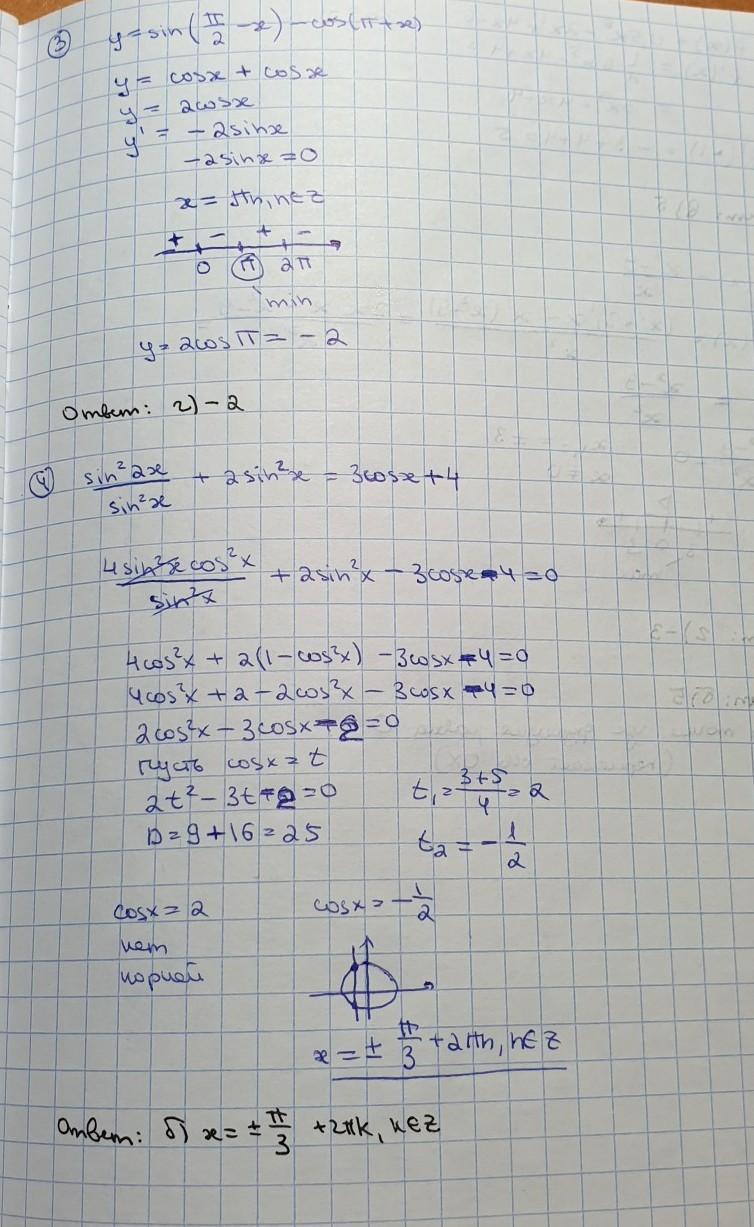 ③ y = sin(π/2 - x) - cos(π + x)
y = cosx + cosx
y = 2cosx
y' = -2sinx
-2sinx = 0
x = πn, n∈Z
+ - + -
0 π 2π
min
y = 2cosπ = -2
Ответ: г) -2
④ sin²2x/sin²x + 2sin²x = 3cosx + 4
4sin²x cos²x/sin²x + 2sin²x - 3cosx - 4 = 0
4cos²x + 2(1 - cos²x) - 3cosx - 4 = 0
4cos²x + 2 - 2cos²x - 3cosx - 4 = 0
2cos²x - 3cosx - 2 = 0
пусть cosx = t
2t² - 3t - 2 = 0 t₁ = (3+5)/4 = 2
D = 9 + 16 = 25 t₂ = -1/2
cosx = 2 cosx = -1/2
нет
корней
x = ± π/3 + 2πn, n∈Z
Ответ: б) x = ± π/3 + 2πk, k∈Z